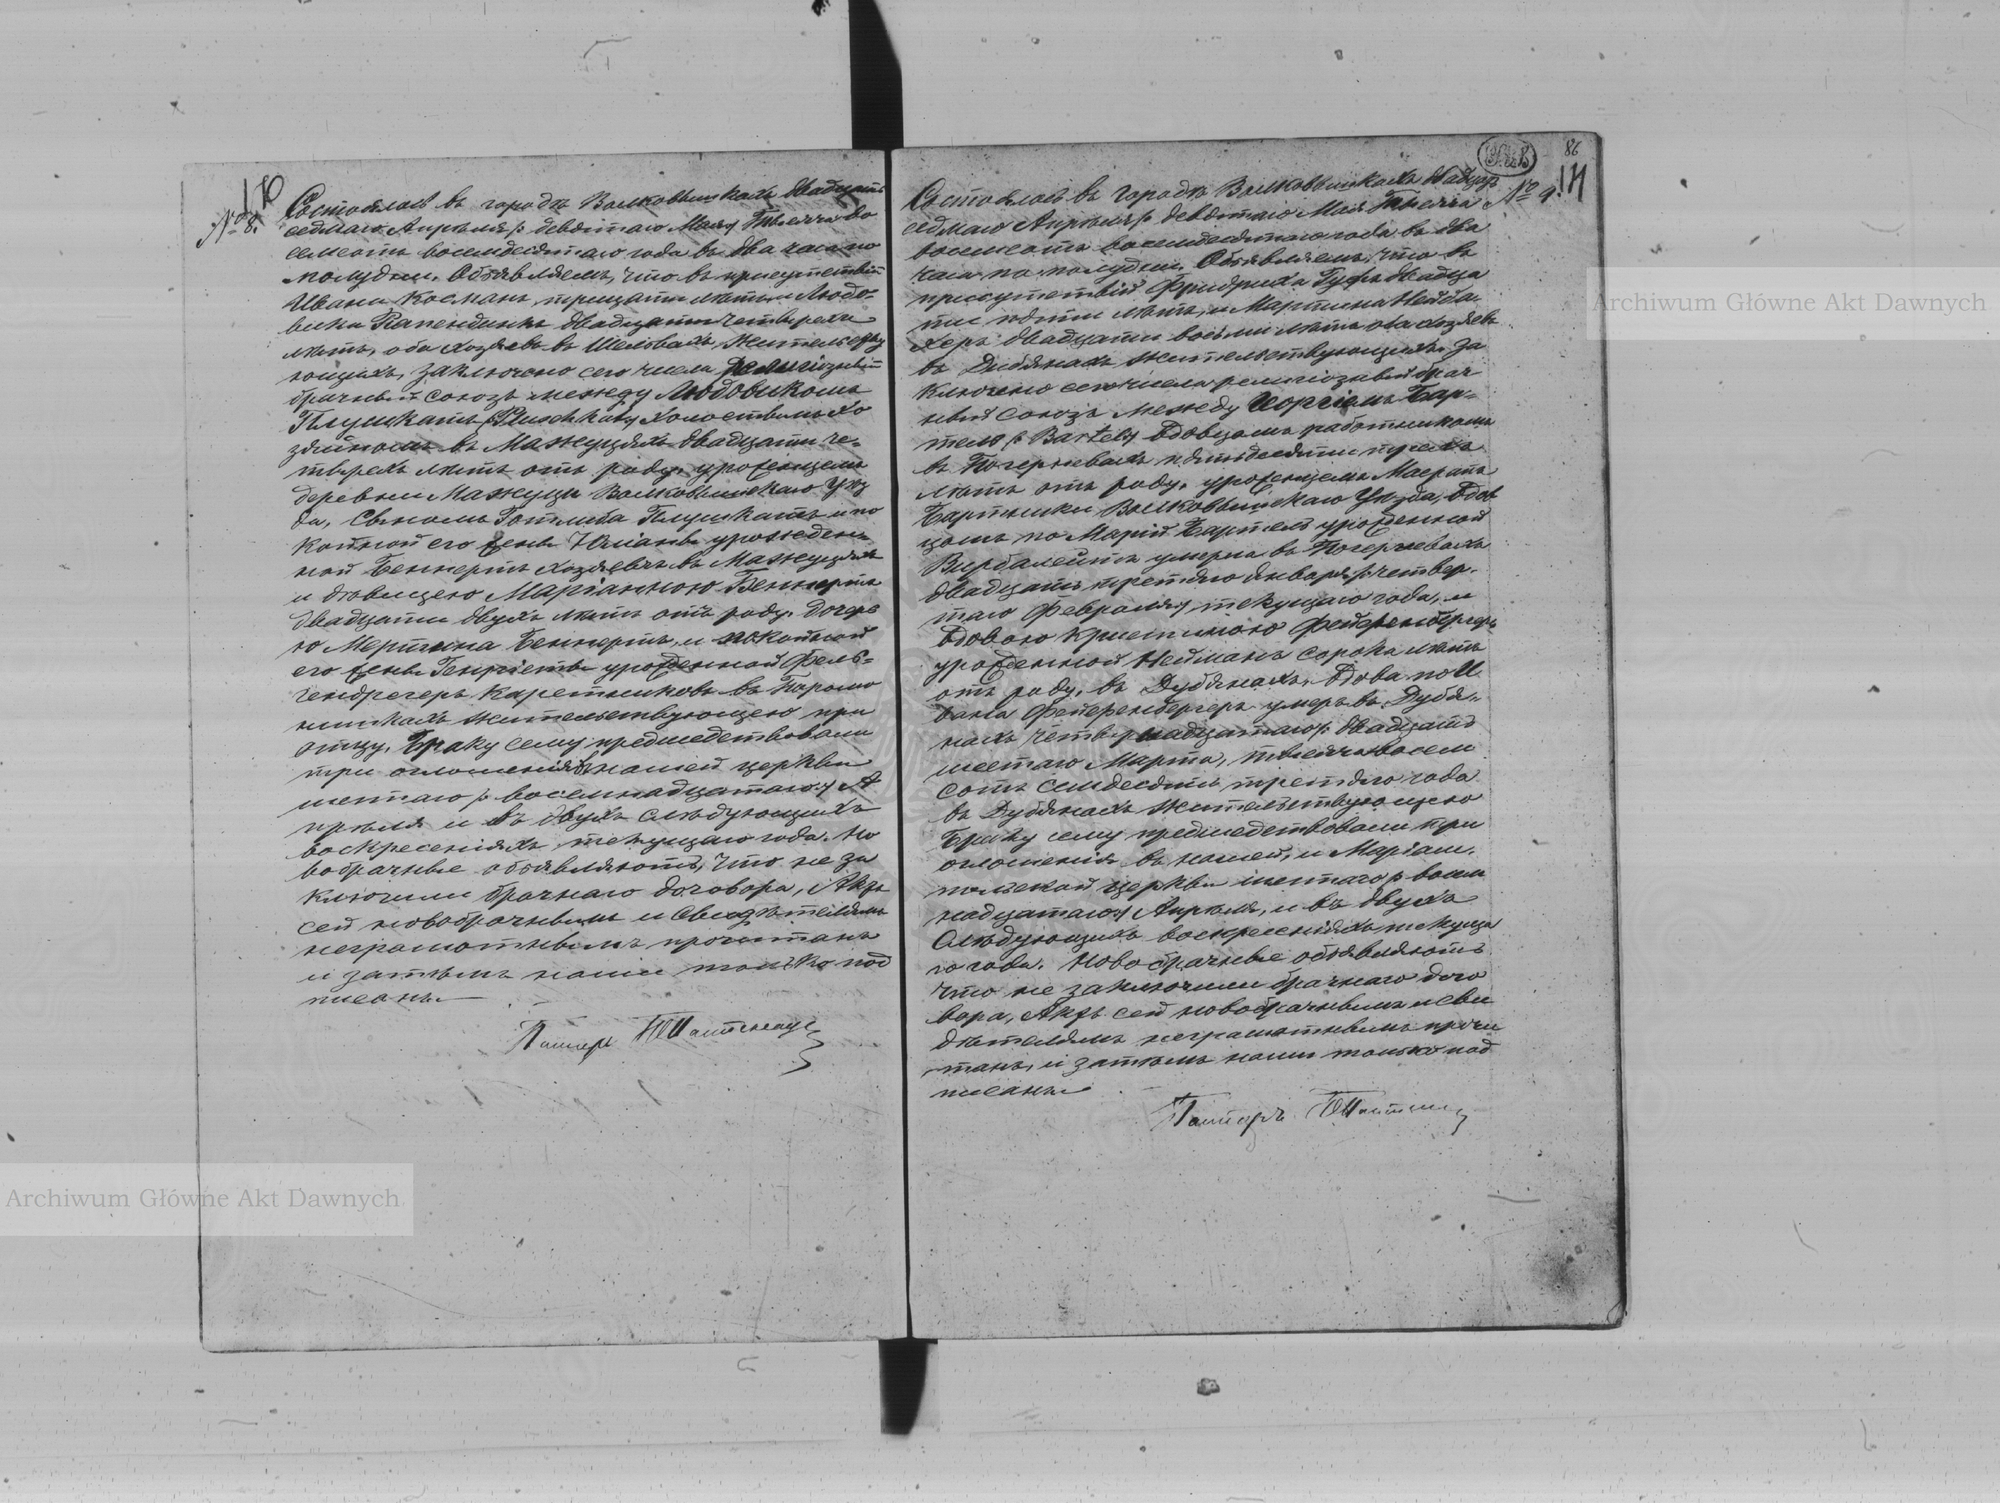 № 8.
Состоялось въ городѣ Волковышкахъ двадцать
седмаго Апрѣля /: девятаго Мая :/ тысяча во
семсотъ восемдесятаго года въ два часа по
полудни. Объявляемъ, что въ присутствіи
Ивана Космань, трицати лѣтъ, и Людо-
вика двадцати четырехъ
лѣтъ, оба хозяевъ въ Шеловахъ жительству
ющихъ, заключено сего числа религіозный
брачный союзъ между Людовикомъ
Плушкатъ /: Pluschkat :/ холостымъ хо
зяиномъ въ Мажуцяхъ двадцати че-
тырехъ лѣтъ отъ роду, уроженцемъ
деревни Мажуци Волковышскаго Уѣз
да, сыномъ Готлиба Плушкатъ и по
койной его жены Юліаны урожден-
ной Беннертъ хозяевъ въ Мажуцяхъ
и дѣвицею Маріанною Беннертъ
двадцати двухъ лѣтъ отъ роду, дочерь
ю Мертина Беннертъ, и покойной
его жены Генріеты урожденной Фель-
гендрегеръ каретниковъ въ
жительствующею при
отцу. Браку сему предшедствовали
три оглошенія въ нашей церкви
шестаго /: восемнадцатаго :/ А
прѣля и въ двухъ слѣдующихъ
воскресеніяхъ, текущаго года. Но
вобрачные объявляютъ, что не за
ключили брачнаго договора, Актъ
сей новобрачнымъ и свидѣтелямъ
неграмотнымъ прочитанъ
и затѣмъ нами только под
писанъ.
Пасторъ
86
№ 9.
Состоялось въ городѣ Волковышкахъ двадцать
седмаго Апрѣля /: девятаго Мая тысяча
восемсотъ восемдесятаго года въ два
часа по полудни. Объявляемъ, что въ
присутствіи Фридриха Гуфъ двадца
ти пяти лѣтъ, и Мартина Нейба-
херъ двадцати восьми лѣтъ оба хозяевъ
въ Дубянахъ жительствующихъ, за
ключено сего числа религіозный брач
ный союзъ между Іоргіемъ Бар-
тель /: Bartel :/ вдовцомъ работникомъ
въ Погерневахъ пятьдесяти трехъ
лѣтъ отъ роду, уроженцемъ
Бартники Волковышскаго Уѣзда, вдов
цомъ по Маріи Бартель урожденной
Вирбалейтъ умерла въ Погерневахъ
двадцать третьяго Января /: четвер-
таго Февраля :/ текущаго года, и
вдовою Кристиною Фейеренбергеръ
урожденной Нейманъ сорока лѣтъ
отъ роду, въ Дубянахъ, вдова по И
вана Фейеренбергеръ умеръ въ Дубя-
нахъ четырнадцатаго /: двадцать
шестаго Марта, тысяча восем
сотъ семдесятъ третьяго года
въ Дубянахъ жительствующею
Браку сему предшедствовали три
оглошенія въ нашей, и Маріам-
польской церкви шестаго /: восем
надцатаго :/ Апрѣля, и въ двухъ
слѣдующихъ воскресеніяхъ текуща
го года. Новобрачные объявляютъ
что не заключили брачнаго дого
вора, Актъ сей новобрачнымъ и сви
дѣтелямъ неграмотнымъ прочи
танъ, и затѣмъ нами только под
писанъ
Пасторъ
Archiwum Główne Akt Dawnych
Archiwum Główne Akt Dawnych